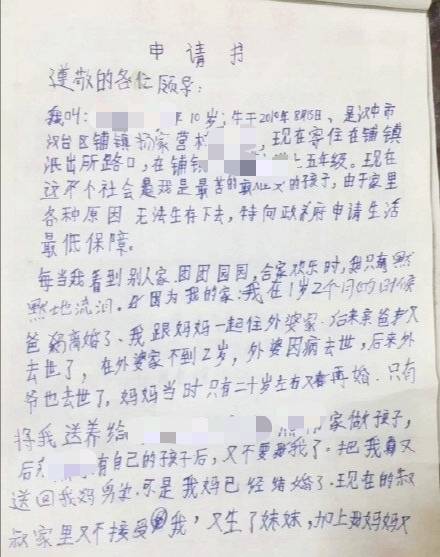 申请书
尊敬的各位领导:
我叫: 年10岁;生于2010年8月15日、是汉中市
汉台区铺镇杨家营村 ,现在寄住在铺镇
派出所路口,在铺镇 上五年级。现在
这个社会是我是最苦的 的孩子,由于家里
各种原因无法生存下去,特向政府申请生活
最低保障。
每当我看到别人家团团园园,合家欢乐时,我只有黙
黙地流泪。因为我的家:我在1岁2个月的时候
爸妈离婚了、我跟妈妈一起住外婆家.后来亲爸又
去世了,在外婆家不到2岁,外婆因病去世,后来外
爷也去世了,妈妈当时只有二十岁左右又再婚.只有
将我送养给 家做孩子,
后来 有自己的孩子后,又不要我了。把我又
送回我妈身边.可是我妈已经结婚了.现在的叔
叔家里又不接受我,又生了妹妹,加上我妈妈又